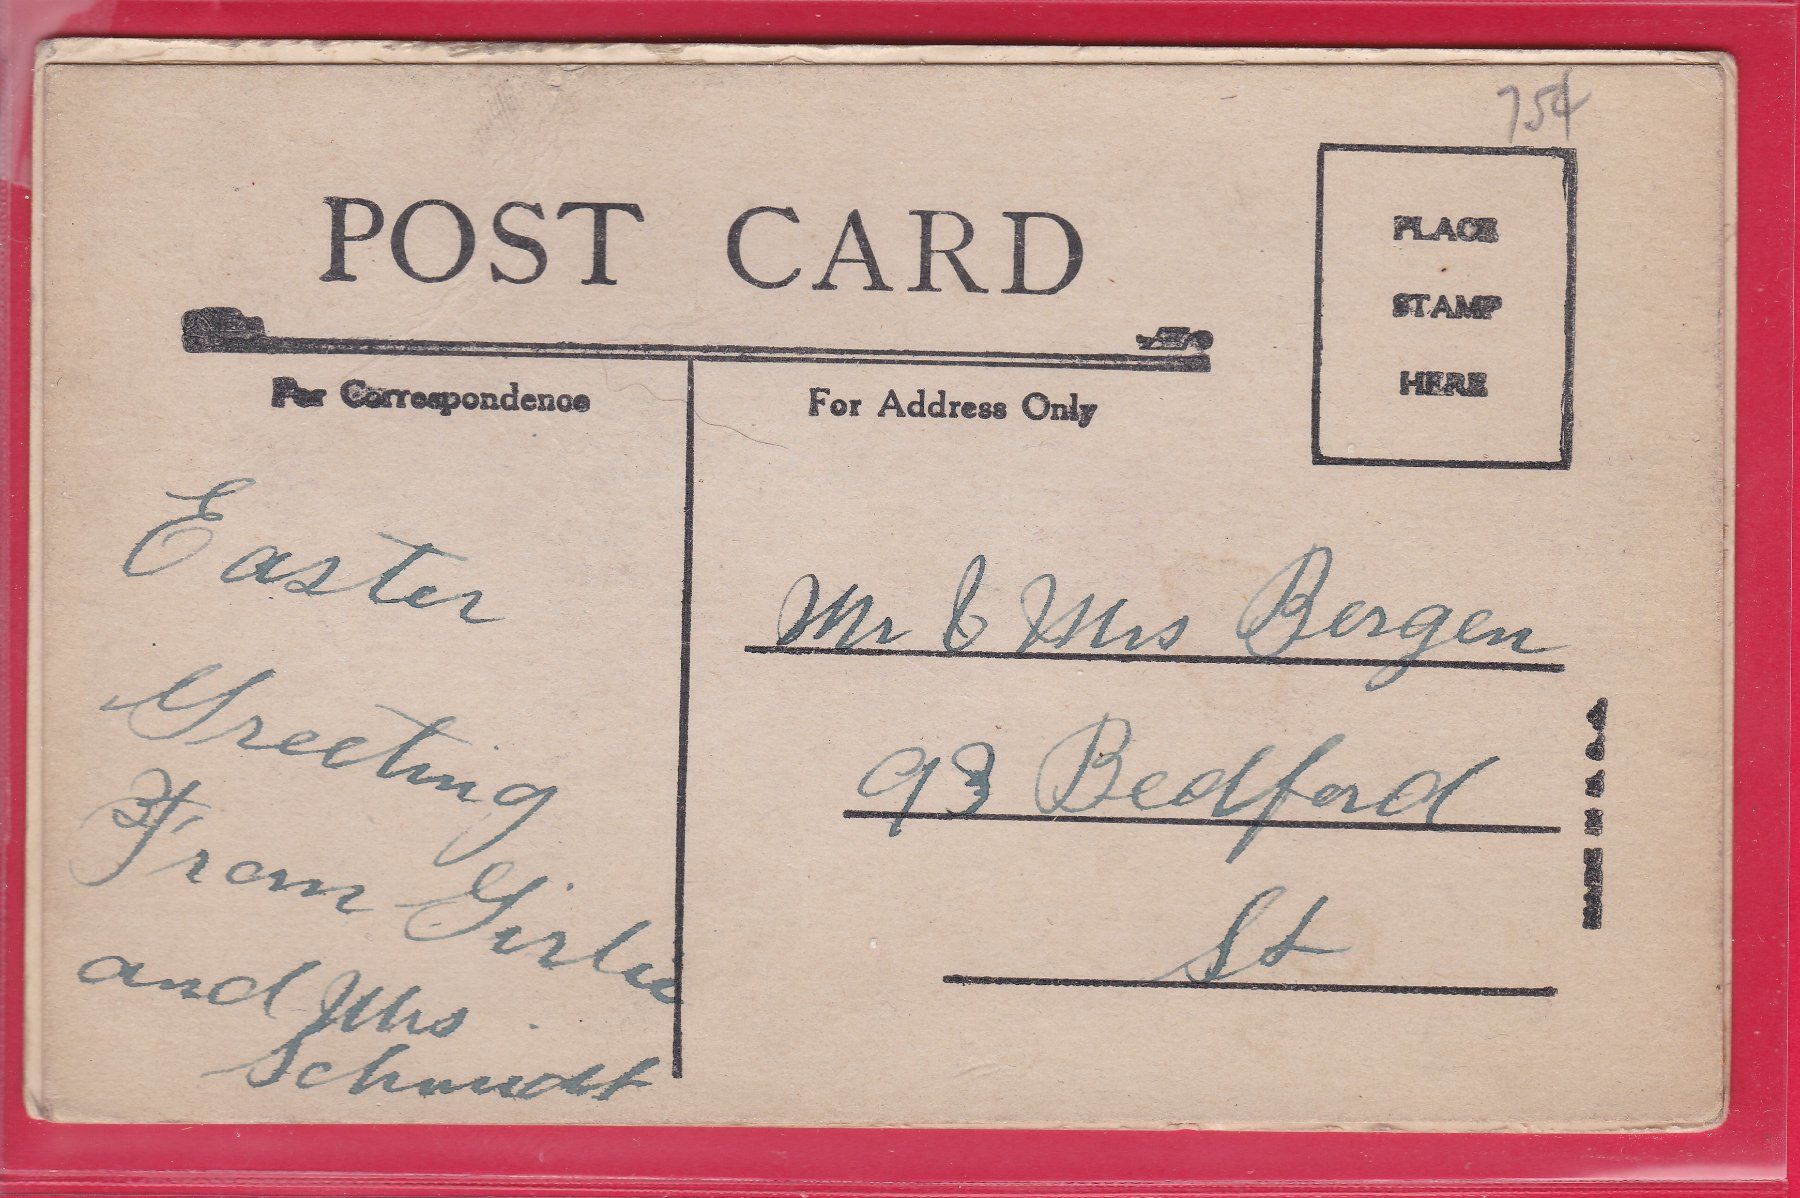 75¢
POST CARD
PLACE
STAMP
HERE
For Correspondence
For Address Only
Easter
Greeting
From Girlie
and Mrs
Schmidt
Mr & Mrs Bergen
93 Bedford
St
MADE IN U.S.A.